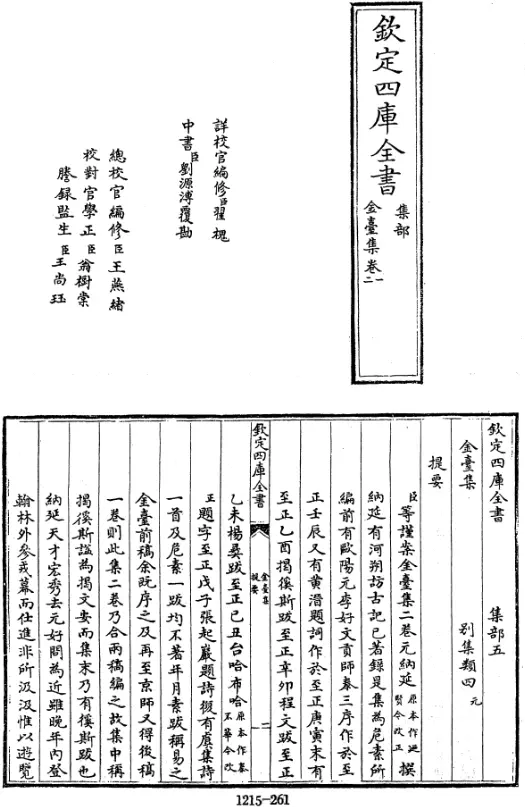 欽定四庫全書
集部
金臺集卷一
二
詳校官編修臣翟槐
中書臣劉源溥覆勘
總校官編修臣王燕緒
校對官學正臣翁樹棠
謄錄監生臣王尚珏
欽定四庫全書 集部五
金臺集 別集類四元
提要
臣等謹案金臺集二卷元納延原本作迺賢今改正撰
納延有河朔訪古記已著錄是集為危素所
編前有歐陽元李好文貢師泰三序作於至
正壬辰又有黃溍題詞作於至正庚寅末有
至正乙酉揭傒斯跋至正辛卯程文跋至正
欽定四庫全書 金臺集 提要 一
乙未楊彝跋至正己丑台哈布哈原本作泰不華今改
正題字至正戊子張起巖題詩後有虞集詩
一首及危素一跋均不著年月素跋稱易之
金臺前稿余既序之及再至京師又得後稿
一卷則此集二卷乃合兩稿編之故集中稱
揭傒斯謚為揭文安而集末乃有傒斯跋也
納延天才宏秀去元好問為近雖晚年內登
翰林外參戎幕而仕進非所汲汲惟以遊覽
1215-261